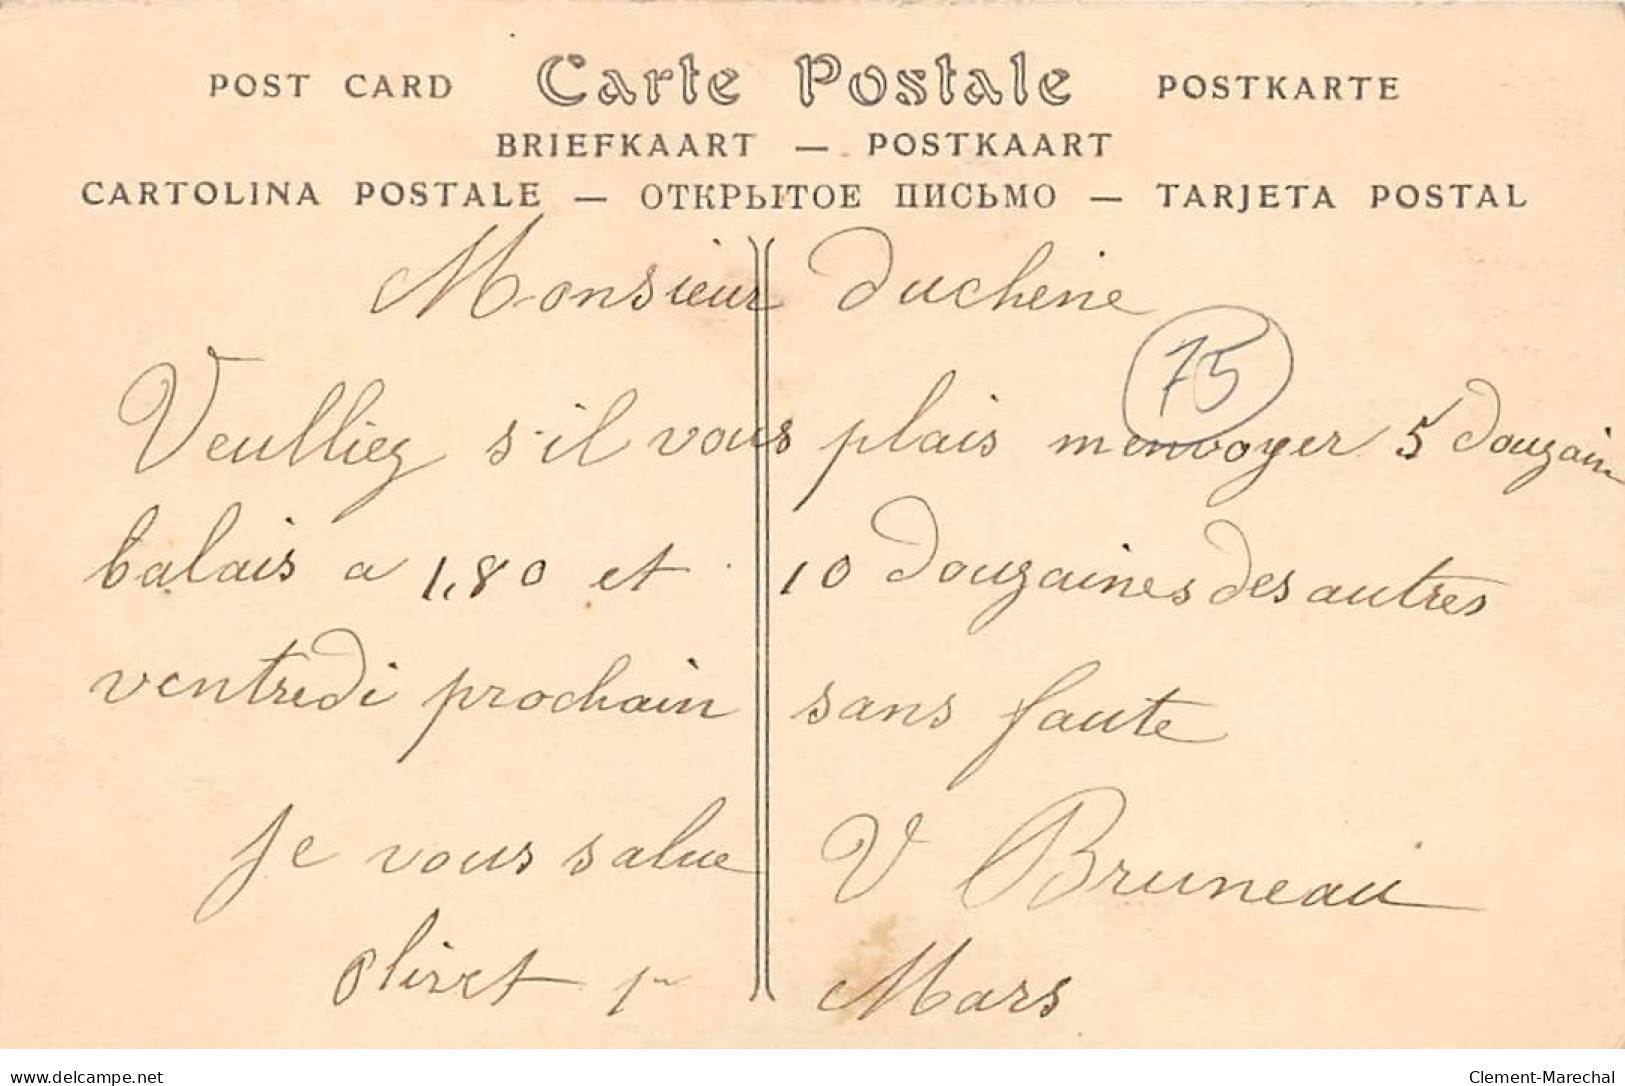 POST CARD Carte Postale POSTKARTE
BRIEFKAART — POSTKAART
CARTOLINA POSTALE — ОТКРЫТОЕ ПИСЬМО — TARJETA POSTAL
Monsieur Duchene
75
Veulliez s'il vous plais menvoyer 5 douzain
balais a 1,80 et 10 douzaines des autres
ventredi prochain sans faute
je vous salue V Bruneau
Olivet 1er Mars
delcampe.net
Clement-Marechal